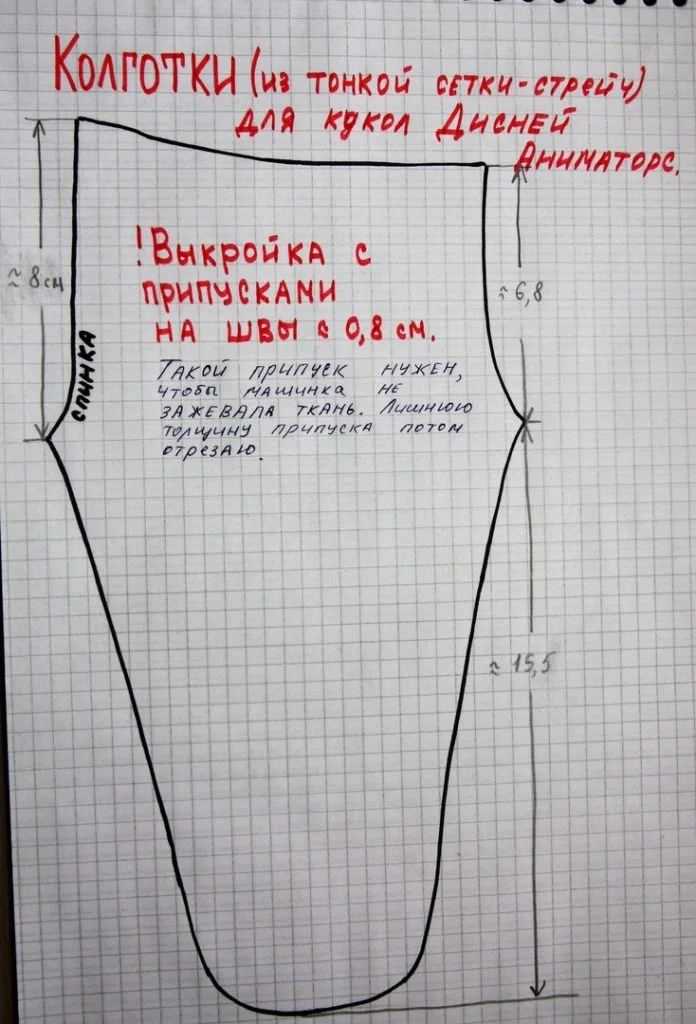 Колготки (из тонкой сетки-стрейч)
для кукол Дисней
Аниматорс.
≈ 8 см
≈ 6,8
! Выкройка с
припусками
на швы ≈ 0,8 см.
спинка
Такой припуск нужен,
чтобы машинка не
зажевала ткань. Лишнюю
толщину припуска потом
отрезаю.
≈ 15,5